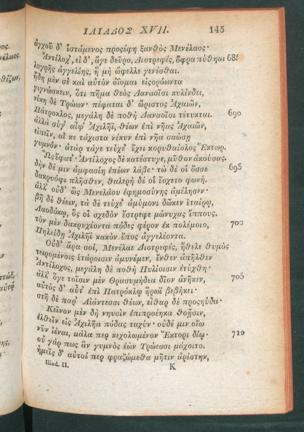 ΙΛΙΑΔΟΣ XVII. 145
ἀγχοῦ δ' ἱστάμενος προσέφη ξανθὸς Μενέλαος·
Ἀντίλοχ', εἰ δ', ἄγε δεῦρο, Διοτρεφὲς, ὄφρα πύθηαι 685
λυγρῆς ἀγγελίης, ἣ μὴ ὤφελλε γενέσθαι.
ἤδη μὲν σὲ καὶ αὐτὸν ὀΐομαι εἰσορόωντα
γιγνώσκειν, ὅτι πῆμα θεὸς Δαναοῖσι κυλίνδει,
νίκη δὲ Τρώων· πέφαται δ' ὤριστος Ἀχαιῶν,
Πάτροκλος, μεγάλη δὲ ποθὴ Δαναοῖσι τέτυκται. 690
ἀλλὰ σύγ' αἶψ' Ἀχιλῆϊ, θέων ἐπὶ νῆας Ἀχαιῶν,
εἰπεῖν, αἴ κε τάχιστα νέκυν ἐπὶ νῆα σαώσῃ
γυμνόν· ἀτὰρ τάγε τεύχε' ἔχει κορυθαίολος Ἕκτωρ.
Ὣς ἔφατ'· Ἀντίλοχος δὲ κατέστυγε, μῦθον ἀκούσας.
δὴν δέ μιν ἀμφασίη ἐπέων λάβε· τὼ δέ οἱ ὄσσε 695
δακρυόφι πλῆσθεν, θαλερὴ δέ οἱ ἔσχετο φωνή.
ἀλλ' οὐδ' ὣς Μενελάου ἐφημοσύνης ἀμέλησεν·
βῆ δὲ θέειν, τὰ δὲ τεύχε' ἀμύμονι δῶκεν ἑταίρῳ,
Λαοδόκῳ, ὅς οἱ σχεδὸν ἔστρεφε μώνυχας ἵππους.
τὸν μὲν δακρυχέοντα πόδες φέρον ἐκ πολέμοιο, 700
Πηλείδῃ Ἀχιλῆϊ κακὸν ἔπος ἀγγελέοντα.
Οὐδ' ἄρα σοὶ, Μενέλαε Διοτρεφὲς, ἤθελε θυμὸς
τειρομένοις ἑτάροισιν ἀμυνέμεν, ἔνθεν ἀπῆλθεν
Ἀντίλοχος, μεγάλη δὲ ποθὴ Πυλίοισιν ἐτύχθη·
ἀλλ' ὅγε τοῖσιν μὲν Θρασυμήδεα δῖον ἀνῆκεν, 705
αὐτὸς δ' αὖτ' ἐπὶ Πατρόκλῳ ἥρωϊ βεβήκει·
στῆ δὲ παρ' Αἰάντεσσι θέων, εἶθαρ δὲ προσηύδα·
Κεῖνον μὲν δὴ νηυσὶν ἐπιπροέηκα θοῇσιν,
ἐλθεῖν εἰς Ἀχιλῆα πόδας ταχύν· οὐδέ μιν οἴω
νῦν ἰέναι, μάλα περ κεχολωμένον Ἕκτορι δίῳ· 710
οὐ γάρ πως ἂν γυμνὸς ἐὼν Τρώεσσι μάχοιτο.
ἡμεῖς δ' αὐτοί περ φραζώμεθα μῆτιν ἀρίστην,
Iliad. II. K